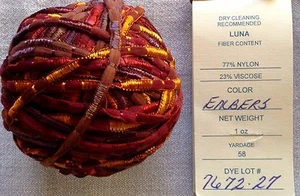 DRY CLEANING
RECOMMENDED
LUNA
FIBER CONTENT
77% NYLON
23% VISCOSE
COLOR
EMBERS
NET WEIGHT
1 oz
YARDAGE
58
DYE LOT #
7672-27